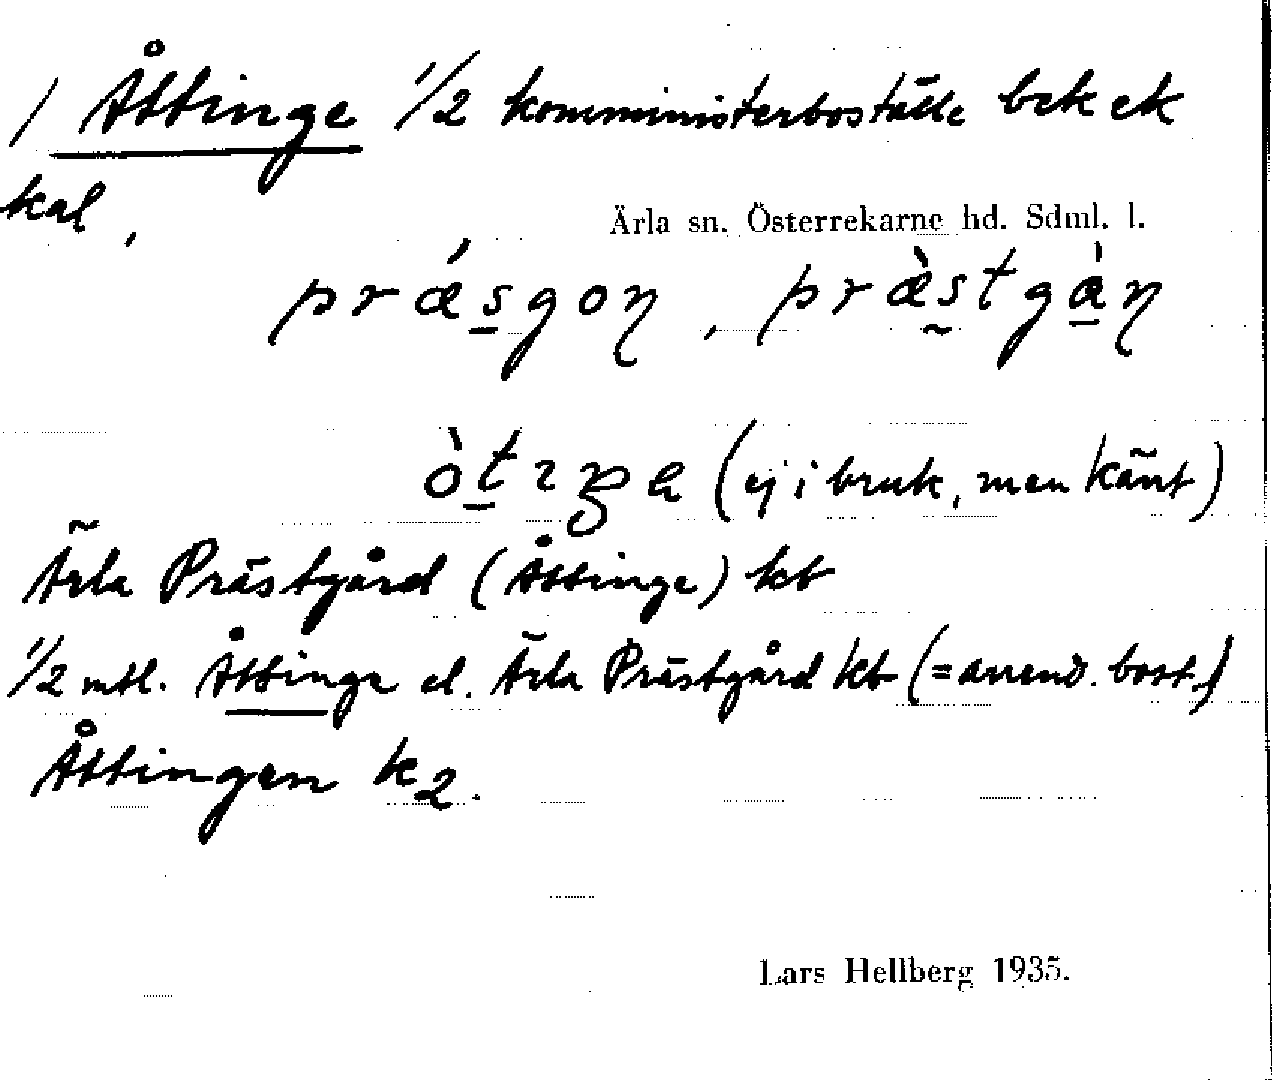 / Åttinge 1/2 komministerboställe bek ek
kal,
Ärla sn. Österrekarne hd. Sdml. l.
prǽsgoŋ, præ̀stgàŋ
(ej i bruk, men känt)
Ärla Prästgård (Åttinge) kb
1/2 mtl. Åttinge el. Ärla Prästgård kb (= arrend. bost.)
Åttingen k2.
Lars Hellberg 1935.